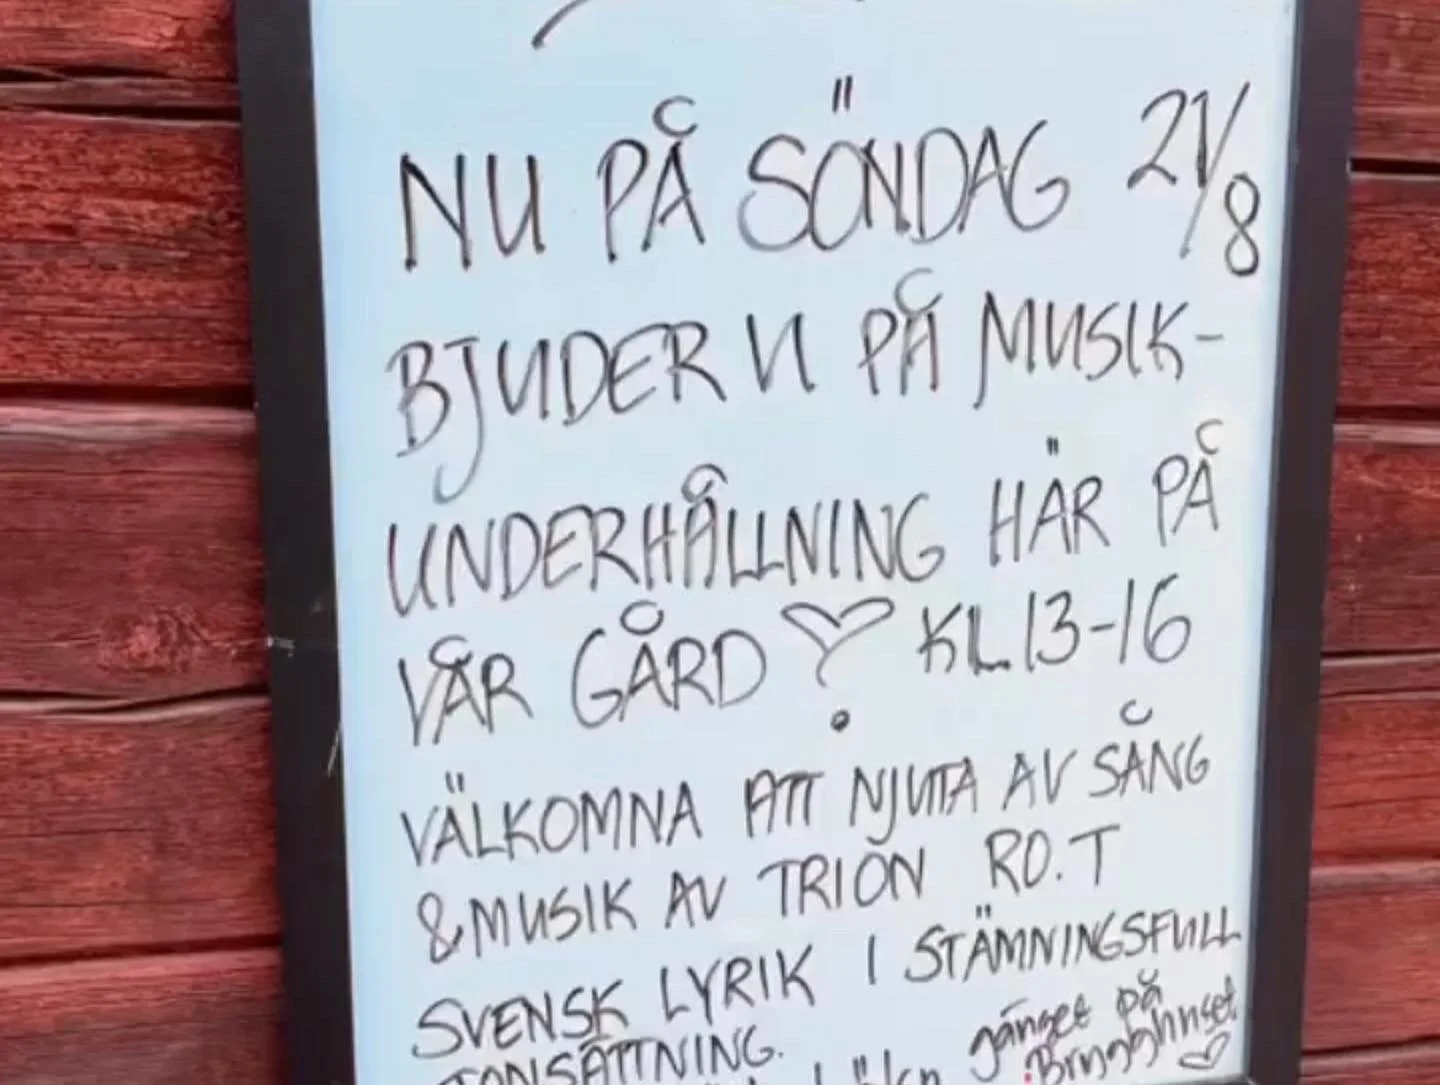 NU PÅ SÖNDAG 21/8
BJUDER VI PÅ MUSIK-
UNDERHÅLLNING HÄR PÅ
VÅR GÅRD KL.13-16
VÄLKOMNA ATT NJUTA AV SÅNG
& MUSIK AV TRION RO.T
SVENSK LYRIK I STÄMNINGSFULL
TONSÄTTNING.
gänget på
Brygghuset